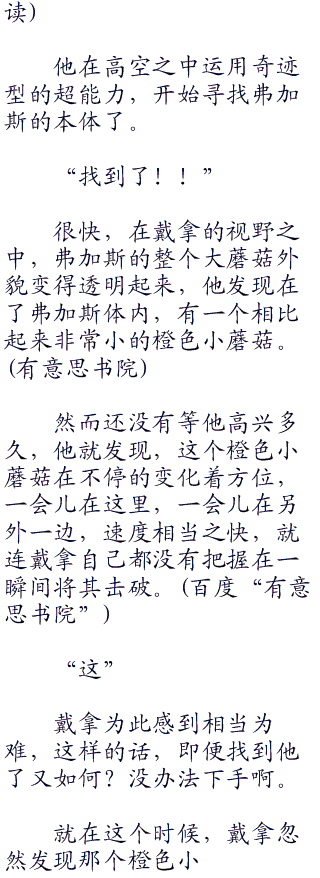 读)
他在高空之中运用奇迹
型的超能力，开始寻找弗加
斯的本体了。
“找到了！！”
很快，在戴拿的视野之
中，弗加斯的整个大蘑菇外
貌变得透明起来，他发现在
了弗加斯体内，有一个相比
起来非常小的橙色小蘑菇。
(有意思书院)
然而还没有等他高兴多
久，他就发现，这个橙色小
蘑菇在不停的变化着方位，
一会儿在这里，一会儿在另
外一边，速度相当之快，就
连戴拿自己都没有把握在一
瞬间将其击破。(百度“有意
思书院”)
“这”
戴拿为此感到相当为
难，这样的话，即便找到他
了又如何？没办法下手啊。
就在这个时候，戴拿忽
然发现那个橙色小